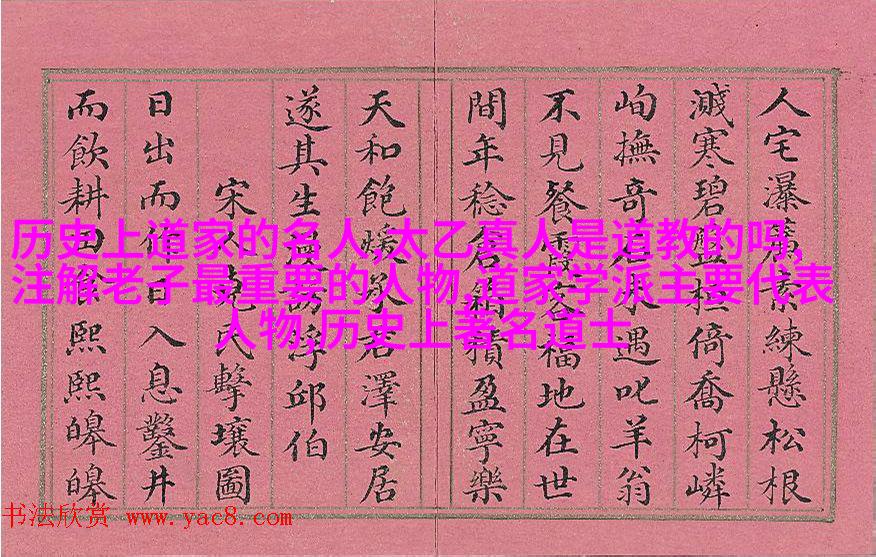 人宅瀑素練懸松根
濺寒碧盤桓倚喬柯嶙
峋撫奇石遇叱羊翁
不見餐霞客福地在世
間年稔倉箱積盈寧樂
天和飽煖君澤安居
遂其生訪浮邱伯
宋人堯民擊壤圖
日出而作日入息鑿井
而飲耕田食熙熙皞皞
历史上道家的名人,太乙真人是道教的吗,
注解老子最重要的人物,道家学派主要代表
人物,历史上著名道士
书法欣赏 www.yac8.com